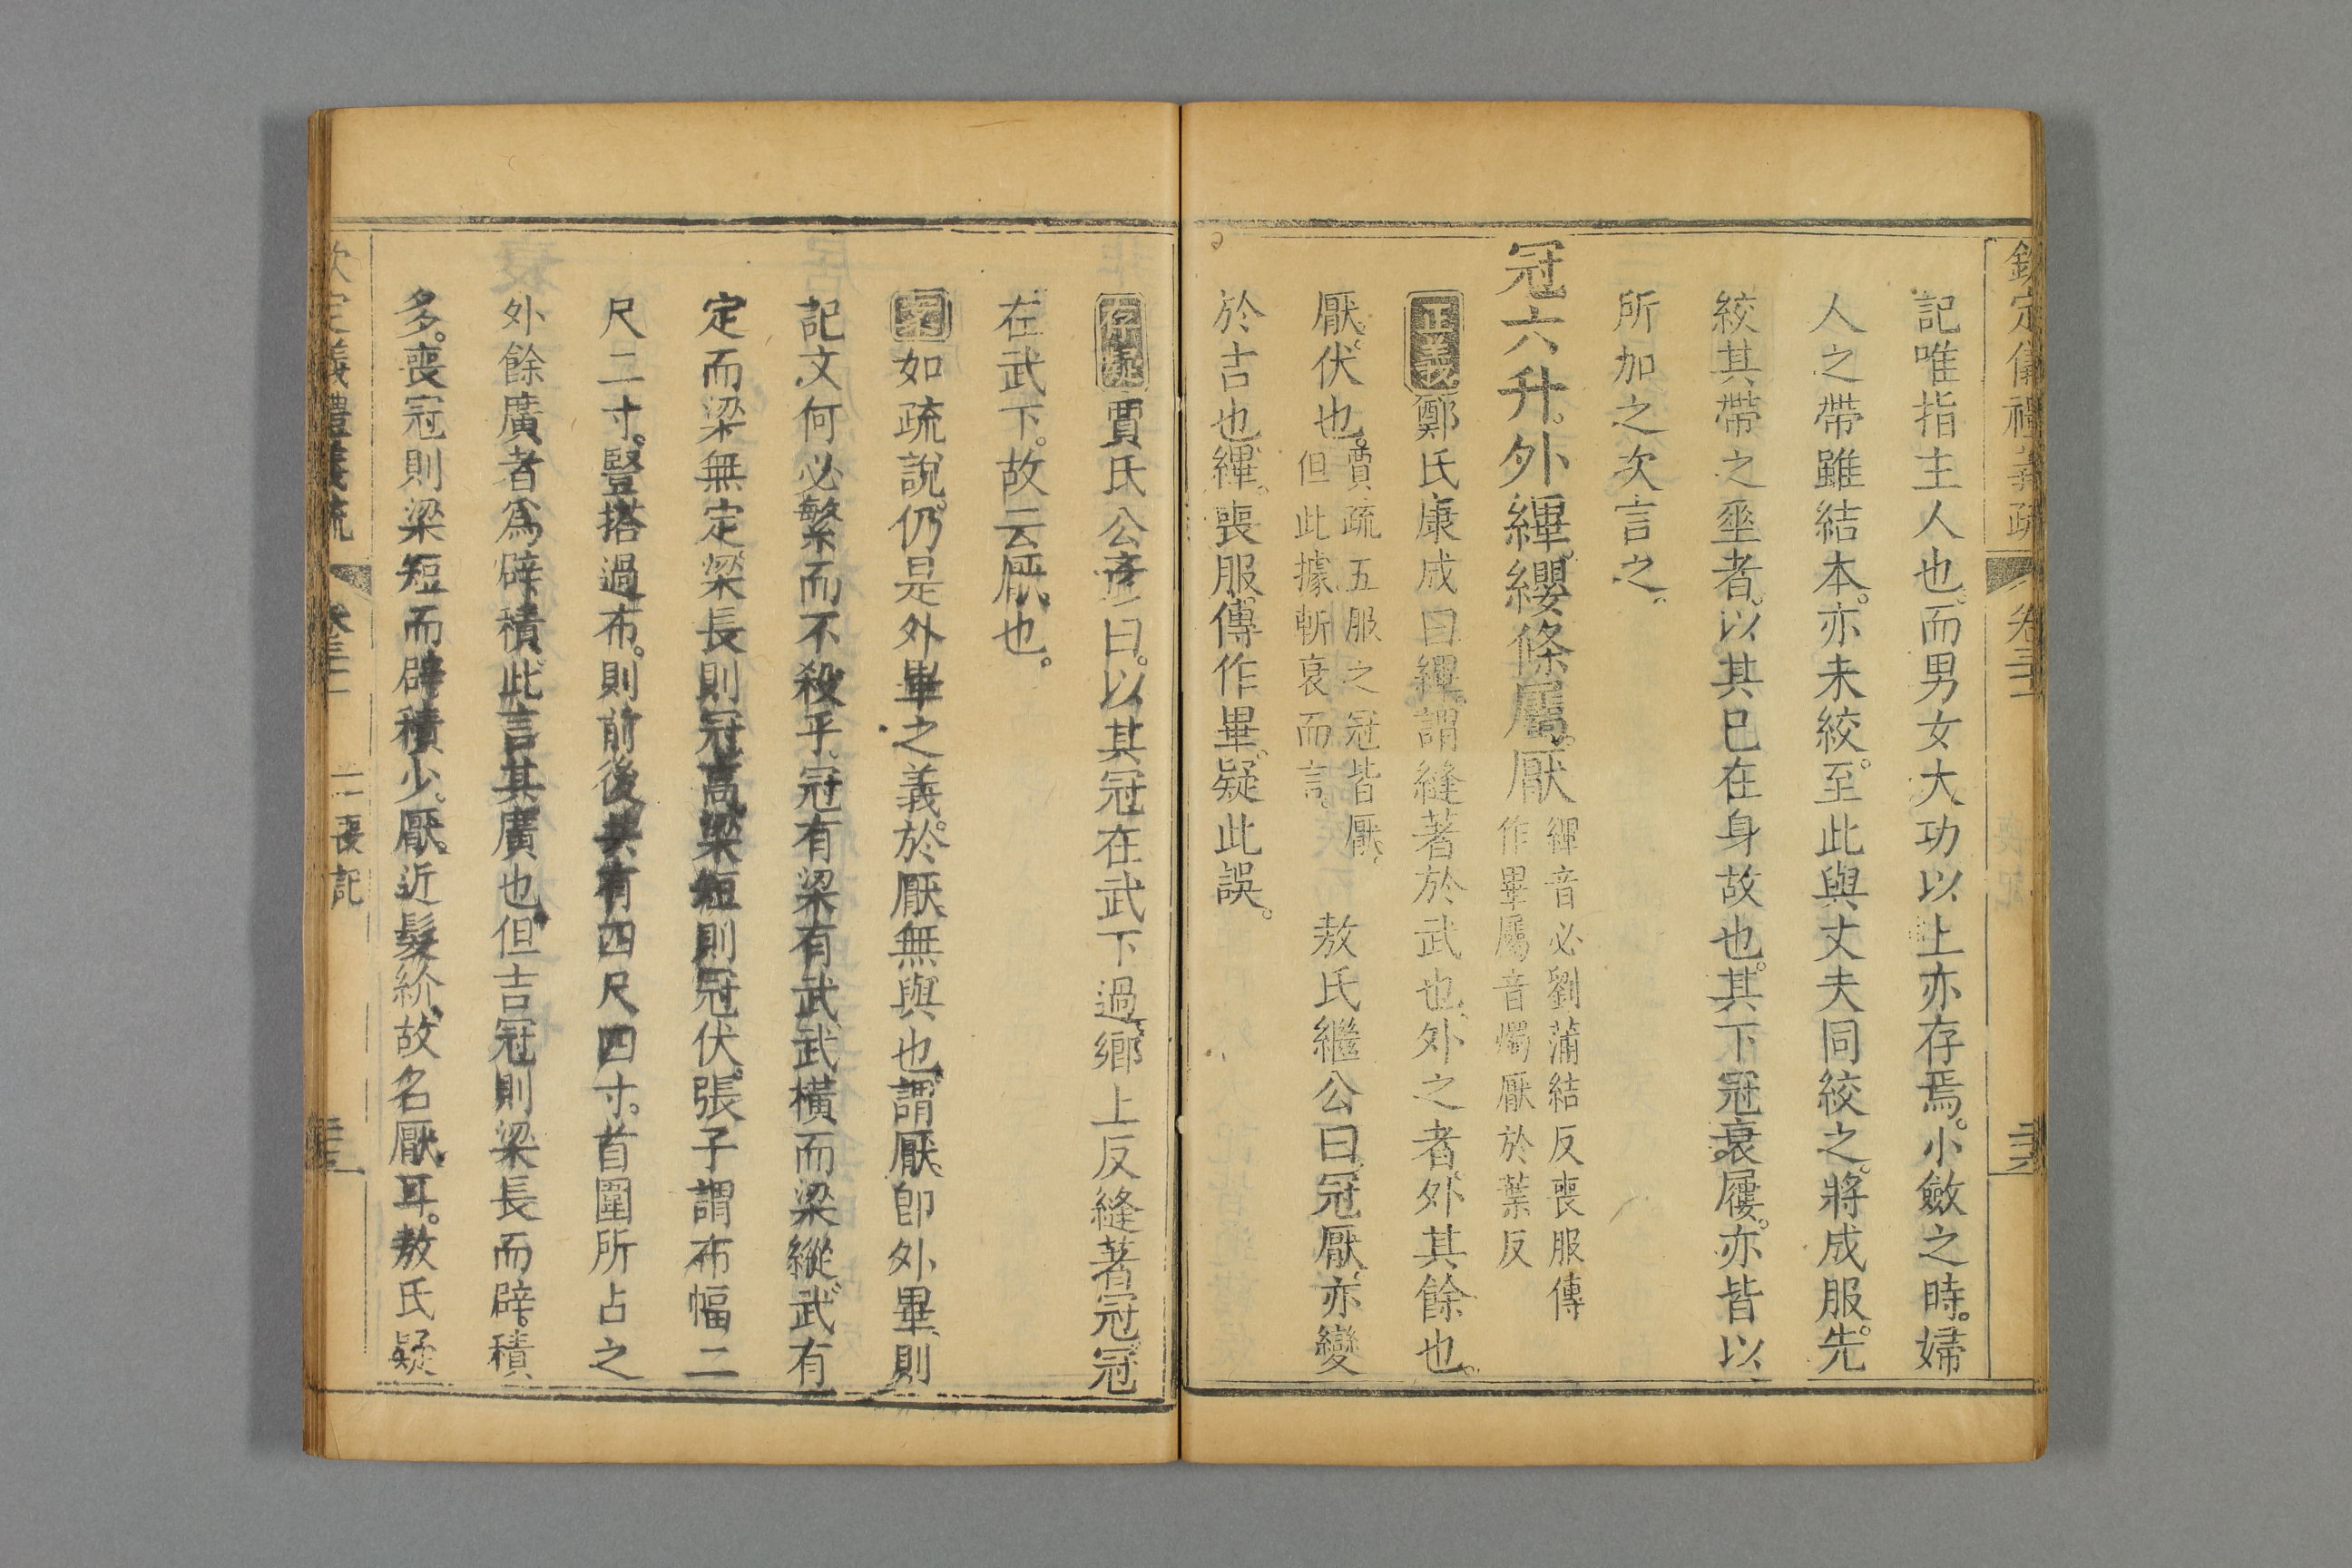 欽定儀禮義疏 卷三十一
記唯指主人也。而男女大功以上亦存焉。小斂之時。婦
人之帶雖結本。亦未絞。至此與丈夫同絞之。將成服。先
絞其帶之垂者。以其已在身故也。其下冠衰屨。亦皆以
所加之次言之。
冠六升。外縪。纓條屬。厭
縪音必劉蒲結反喪服傳
作畢屬音燭厭於葉反
正義鄭氏康成曰縪。謂縫著於武也。外之者。外其餘也。
厭。伏也。
賈疏五服之冠皆厭。
但此據斬衰而言。
敖氏繼公曰。冠厭。亦變
於吉也縪。喪服傳作畢。疑此誤。
存疑賈氏公彥曰。以其冠在武下過。鄉上反縫著冠。冠
在武下。故云厭也。
案如疏說。仍是外畢之義。於厭無與也。謂厭卽外畢。則
記文何必繁而不殺乎。冠有梁有武。武橫而梁縱。武有
定而梁無定。梁長則冠高。梁短則冠伏。張子謂布幅二
尺二寸。豎搭過布。則前後共有四尺四寸。首圍所占之
外餘廣者爲辟積。此言其廣也。但吉冠則梁長而辟。積
多。喪冠則梁短而辟積少。厭近髮紒。故名厭耳。敖氏疑
喪記